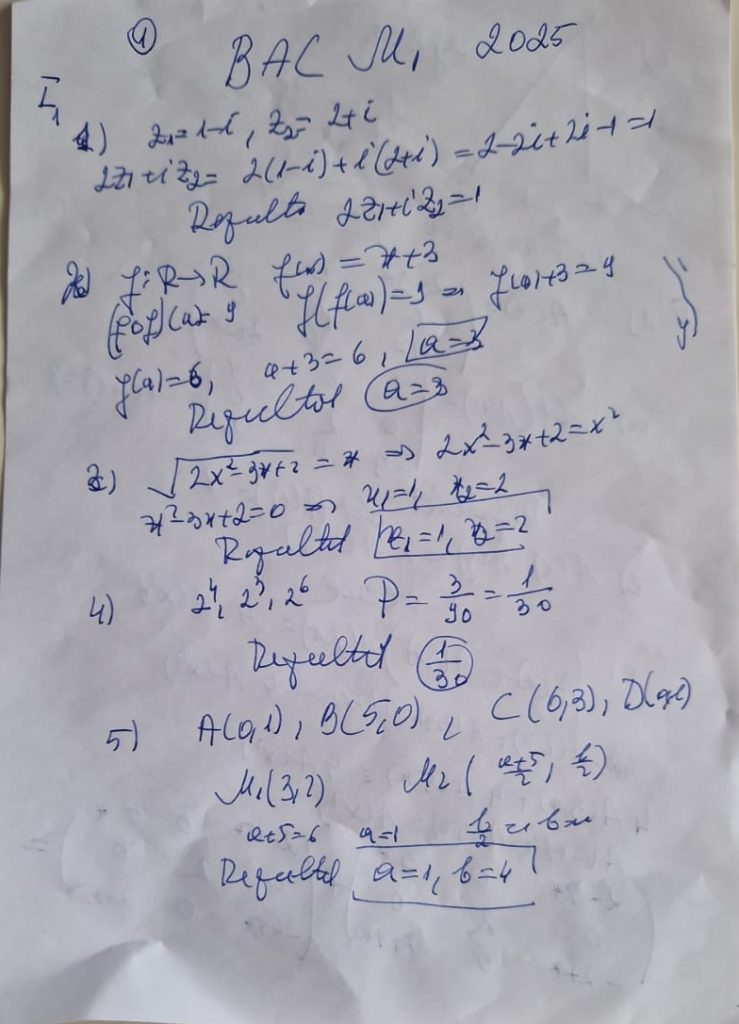 1
BAC M₁ 2025
I₁
1) z₁=1-i, z₂= 2+i
2z₁+iz₂= 2(1-i)+i(2+i) = 2-2i+2i-1=1
2z₁+iz₂=1
2) f: R→R f(x) = x+3
(f∘f)(a)= 9 f(f(a))=9 ⇒ f(a)+3=9
f(a)=6, a+3=6, a=3
Rezultă a=3
3) √2x²-3x+2 = x ⇒ 2x²-3x+2=x²
x²-3x+2=0 ⇒ x₁=1, x₂=2
Rezultă x₁=1, x₂=2
4) 2⁴, 2⁵, 2⁶ P= 3/90 = 1/30
Rezultă 1/30
5) A(0,1), B(5,0), C(6,3), D(a,b)
M₁(3,2) M₂( a+5/2, b/2)
a+5=6 a=1 b/2
Rezultă a=1, b=4